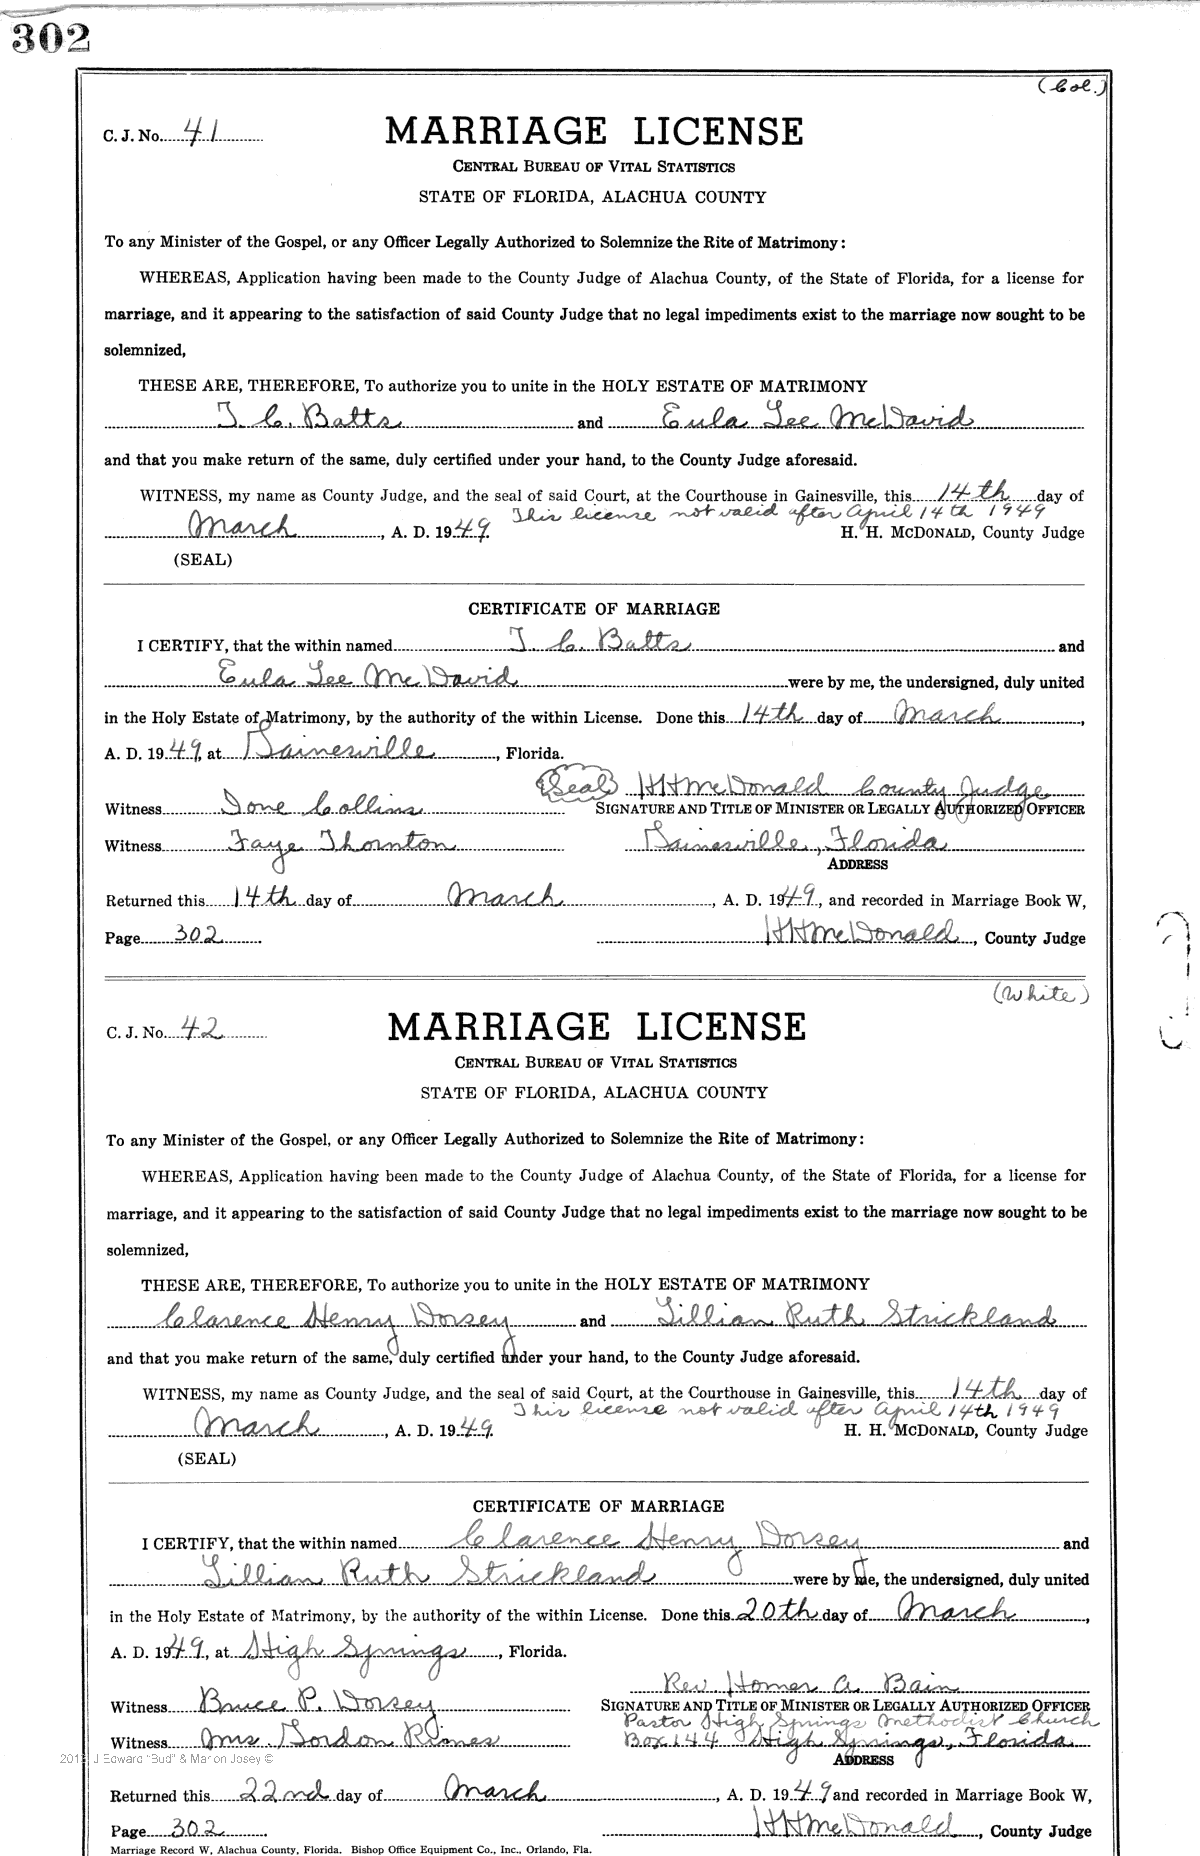 302
(Col.)
C. J. No. 41
MARRIAGE LICENSE
CENTRAL BUREAU OF VITAL STATISTICS
STATE OF FLORIDA, ALACHUA COUNTY
To any Minister of the Gospel, or any Officer Legally Authorized to Solemnize the Rite of Matrimony:
WHEREAS, Application having been made to the County Judge of Alachua County, of the State of Florida, for a license for
marriage, and it appearing to the satisfaction of said County Judge that no legal impediments exist to the marriage now sought to be
solemnized,
THESE ARE, THEREFORE, To authorize you to unite in the HOLY ESTATE OF MATRIMONY
T. C. Batts and Eula Lee McDavid
and that you make return of the same, duly certified under your hand, to the County Judge aforesaid.
WITNESS, my name as County Judge, and the seal of said Court, at the Courthouse in Gainesville, this 14th day of
This license not valid after April 14th 1949
March, A. D. 1949. H. H. McDONALD, County Judge
(SEAL)
CERTIFICATE OF MARRIAGE
I CERTIFY, that the within named T. C. Batts and
Eula Lee McDavid were by me, the undersigned, duly united
in the Holy Estate of Matrimony, by the authority of the within License. Done this 14th day of March,
A. D. 1949, at Gainesville, Florida.
(Seal) HHMcDonald County Judge
Witness Ione Collins SIGNATURE AND TITLE OF MINISTER OR LEGALLY AUTHORIZED OFFICER
Witness Faye Thornton Gainesville, Florida
ADDRESS
Returned this 14th day of March, A. D. 1949, and recorded in Marriage Book W,
Page 302 HHMcDonald, County Judge
(White)
C. J. No. 42
MARRIAGE LICENSE
CENTRAL BUREAU OF VITAL STATISTICS
STATE OF FLORIDA, ALACHUA COUNTY
To any Minister of the Gospel, or any Officer Legally Authorized to Solemnize the Rite of Matrimony:
WHEREAS, Application having been made to the County Judge of Alachua County, of the State of Florida, for a license for
marriage, and it appearing to the satisfaction of said County Judge that no legal impediments exist to the marriage now sought to be
solemnized,
THESE ARE, THEREFORE, To authorize you to unite in the HOLY ESTATE OF MATRIMONY
Clarence Henry Dorsey and Lillian Ruth Strickland
and that you make return of the same, duly certified under your hand, to the County Judge aforesaid.
WITNESS, my name as County Judge, and the seal of said Court, at the Courthouse in Gainesville, this 14th day of
This license not valid after April 14th 1949
March, A. D. 1949. H. H. McDONALD, County Judge
(SEAL)
CERTIFICATE OF MARRIAGE
I CERTIFY, that the within named Clarence Henry Dorsey and
Lillian Ruth Strickland were by me, the undersigned, duly united
in the Holy Estate of Matrimony, by the authority of the within License. Done this 20th day of March,
A. D. 1949, at High Springs, Florida.
Rev. Homer A. Bain
Witness Bruce P. Dorsey SIGNATURE AND TITLE OF MINISTER OR LEGALLY AUTHORIZED OFFICER
Pastor High Springs Methodist Church
Witness Mrs. Gordon Rimes Box 144 High Springs, Florida
J Edward "Bud" & Marion Josey ©
ADDRESS
Returned this 22nd day of March, A. D. 1949 and recorded in Marriage Book W,
Page 302. HHMcDonald, County Judge
Marriage Record W, Alachua County, Florida. Bishop Office Equipment Co., Inc., Orlando, Fla.